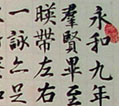 永和九年
羣賢畢至
暎帶左右
一詠亦足